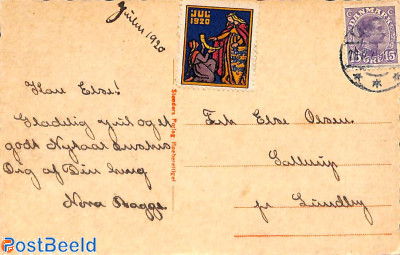 Julen 1920
JUL
1920
DANMARK
15 ØRE 15
Kære Else!
Glædelig Jul og et
godt Nytaar ønskes
Dig af Din
Nora Bagge
Frk Else Olsen
pr Lundby
Stenders Forlag
PostBeeld